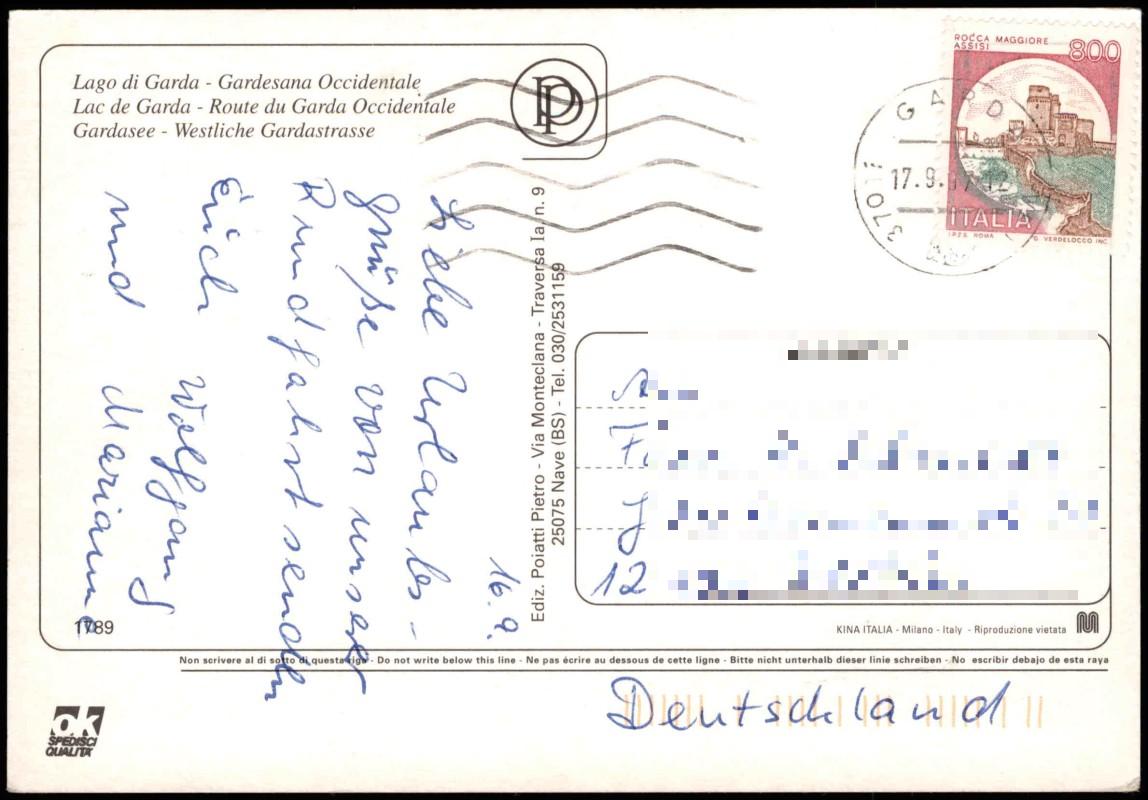 Lago di Garda - Gardesana Occidentale
Lac de Garda - Route du Garda Occidentale
Gardasee - Westliche Gardastrasse
PP
ROCCA MAGGIORE
ASSISI
800
ITALIA
I.P.Z.S. ROMA
G. VERDELOCCO INC.
GARDA
37011
17.9.97
16.9.
Liebe Urlaubs-
grüße von unser
Rundfahrt senden
Euch Wolfgang
und Marianne
Ediz. Poiatti Pietro - Via Monteclana - Traversa Ia, n. 9
25075 Nave (BS) - Tel. 030/2531159
12
1789
KINA ITALIA - Milano - Italy - Riproduzione vietata
Non scrivere al di sotto di questa riga - Do not write below this line - Ne pas écrire au dessous de cette ligne - Bitte nicht unterhalb dieser linie schreiben - No escribir debajo de esta raya
Deutschland
OK
SPEDISCI
QUALITA'